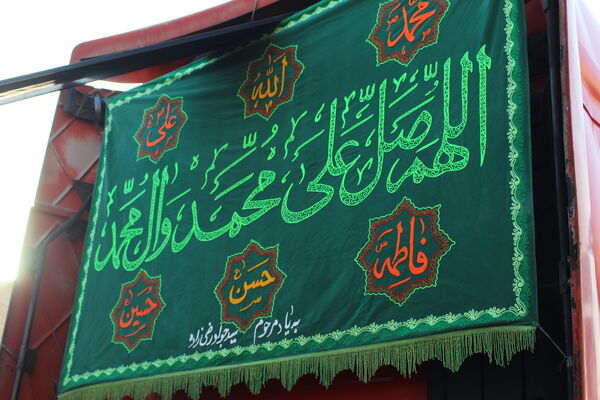 محمد
الله
علی
اللهم صل علی محمد وال محمد
فاطمة
حسن
حسین
به یاد مرحوم